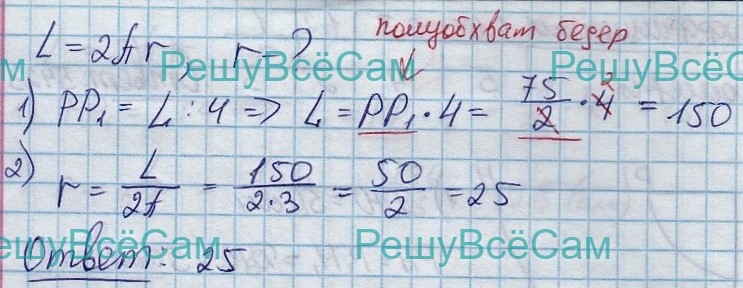 полуобхват бедер
L = 2πr, r = ?
РешуВсёСам РешуВсёСам
1) PP₁ = L : 4 => L = PP₁ · 4 = 75/2 · 4 2 = 150
2) r = L/2π = 150/2·3 = 50/2 = 25
РешуВсёСам РешуВсёСам
Ответ: 25